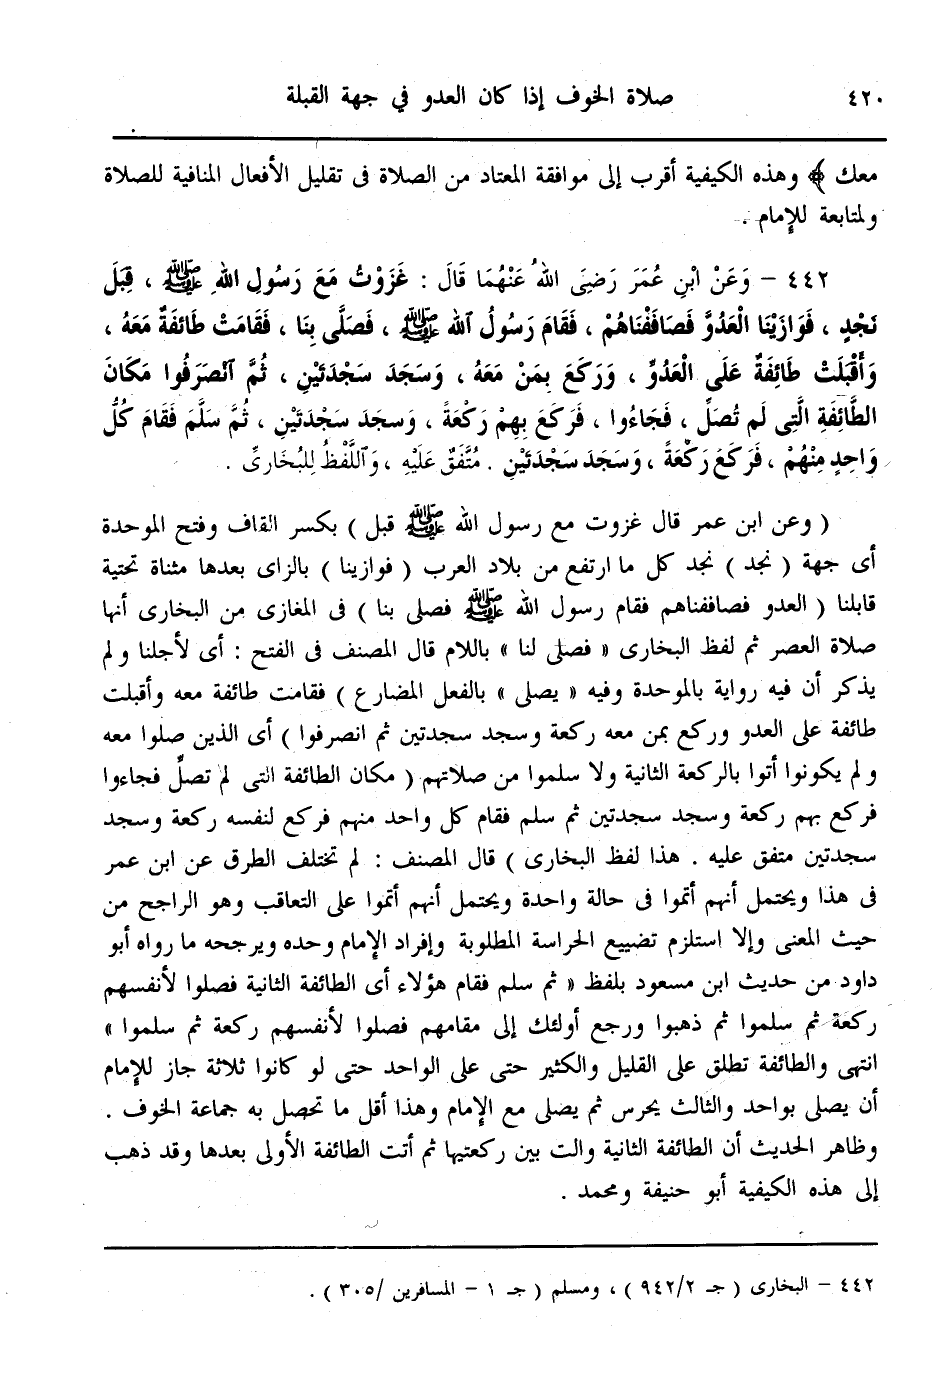 ٤٢٠ صلاة الخوف إذا كان العدو في جهة القبلة
معك ﴾ وهذه الكيفية أقرب إلى موافقة المعتاد من الصلاة فى تقليل الأفعال المنافية للصلاة
ولمتابعة للإمام .
٤٤٢ – وَعَنْ ابْنِ عُمَرَ رَضِىَ اللهُ عَنْهُمَا قَالَ : غَزَوْتُ مَعَ رَسُولِ اللهِ ﷺ ، قِبَلَ
نَجْدٍ ، فَوَازَيْنَا الْعَدُوَّ فَصَافَفْنَاهُمْ ، فَقَامَ رَسُولُ ٱللهِ ﷺ ، فَصَلَّى بِنَا ، فَقَامَتْ طَائِفَةٌ مَعَهُ ،
وَأَقْبَلَتْ طَائِفَةٌ عَلَى الْعَدُوِّ ، وَرَكَعَ بِمَنْ مَعَهُ ، وَسَجَدَ سَجْدَتَيْنِ ، ثُمَّ ٱنْصَرَفُوا مَكَانَ
الطَّائِفَةِ الَّتِى لَم تُصَلِّ ، فَجَاءُوا ، فَرَكَعَ بِهِمْ رَكْعَةً ، وَسَجَدَ سَجْدَتَيْنِ ، ثُمَّ سَلَّمَ فَقَامَ كُلُّ
وَاحِدٍ مِنْهُمْ ، فَرَكَعَ رَكْعَةً ، وَسَجَدَ سَجْدَتَيْنِ . مُتَّفَقٌ عَلَيْهِ ، وَٱللَّفْظُ لِلبُخَارِىِّ .
( وعن ابن عمر قال غزوت مع رسول الله ﷺ قبل ) بكسر القاف وفتح الموحدة
أى جهة ( نجد ) نجد كل ما ارتفع من بلاد العرب ( فوازينا ) بالزاى بعدها مثناة تحتية
قابلنا ( العدو فصاففناهم فقام رسول الله ﷺ فصلى بنا ) فى المغازى من البخارى أنها
صلاة العصر ثم لفظ البخارى « فصلى لنا » باللام قال المصنف فى الفتح : أى لأجلنا ولم
يذكر أن فيه رواية بالموحدة وفيه « يصلى » بالفعل المضارع ) فقامت طائفة معه وأقبلت
طائفة على العدو وركع بمن معه ركعة وسجد سجدتين ثم انصرفوا ) أى الذين صلوا معه
ولم يكونوا أتوا بالركعة الثانية ولا سلموا من صلاتهم ( مكان الطائفة التى لم تصلِّ فجاءوا
فركع بهم ركعة وسجد سجدتين ثم سلم فقام كل واحد منهم فركع لنفسه ركعة وسجد
سجدتين متفق عليه . هذا لفظ البخارى ) قال المصنف : لم تختلف الطرق عن ابن عمر
فى هذا ويحتمل أنهم أتموا فى حالة واحدة ويحتمل أنهم أتموا على التعاقب وهو الراجح من
حيث المعنى وإلا استلزم تضييع الحراسة المطلوبة وإفراد الإمام وحده ويرجحه ما رواه أبو
داود من حديث ابن مسعود بلفظ « ثم سلم فقام هؤلاء أى الطائفة الثانية فصلوا لأنفسهم
ركعة ثم سلموا ثم ذهبوا ورجع أولئك إلى مقامهم فصلوا لأنفسهم ركعة ثم سلموا »
انتهى والطائفة تطلق على القليل والكثير حتى على الواحد حتى لو كانوا ثلاثة جاز للإمام
أن يصلى بواحد والثالث يحرس ثم يصلى مع الإمام وهذا أقل ما تحصل به جماعة الخوف .
وظاهر الحديث أن الطائفة الثانية والت بين ركعتيها ثم أتت الطائفة الأولى بعدها وقد ذهب
إلى هذه الكيفية أبو حنيفة ومحمد .
٤٤٢ – البخارى ( جـ ٢/ ٩٤٢ ) ، ومسلم ( جـ ١ – المسافرين /٣٠٥ ) .